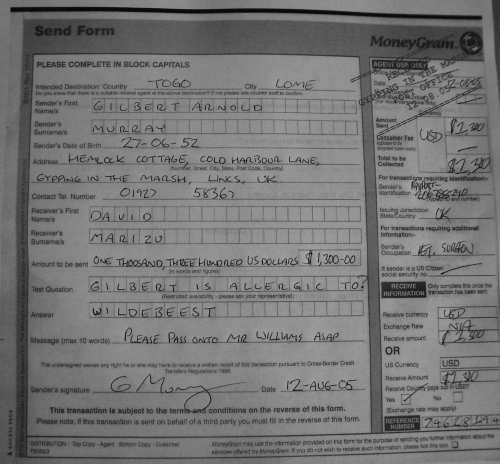 Send Form
MoneyGram.
PLEASE COMPLETE IN BLOCK CAPITALS
AGENT USE ONLY
Intended Destination: Country TOGO City LOME
Sender's First Name/s GILBERT ARNOLD
Sender's Surname/s MURRAY
Sender's Date of Birth 27-06-52
Address HEMLOCK COTTAGE, COLD HARBOUR LANE,
(Number, Street, City, State, Post Code, Country)
GYPPING IN THE MARSH, LINCS, UK
Contact Tel. Number 01927 58367
Receiver's First Name/s DAVID
Receiver's Surname/s MARIZU
Amount to be sent ONE THOUSAND, THREE HUNDRED US DOLLARS $1,300-00
(in words and figures)
Test Question GILBERT IS ALLERGIC TO?
(Restricted availability - please ask your representative)
Answer WILDEBEEST
Message (max 10 words) PLEASE PASS ONTO MR WILLIAMS ASAP
The undersigned waives any right he or she may have to receive a written record of this transaction pursuant to Cross-Border Credit
Transfers Regulations 1999.
Sender's signature Date 12-AUG-05
This transaction is subject to the terms and conditions on the reverse of this form.
Please note, if this transaction is sent on behalf of a third party you must fill in the reverse of this form.
DISTRIBUTION: Top Copy - Agent Bottom Copy - Customer
Amount Sent
Consumer Fee
USD
Total to be Collected
For transactions requiring Identification:-
Sender's Identification
Issuing Jurisdiction State/Country UK
For transactions requiring additional Information:-
Sender's Occupation
If sender is a US Citizen
social security no.
RECEIVE INFORMATION
Only complete this once the transaction has been sent
Receive currency USD
Exchange Rate N/A
Receive amount
OR
US Currency USD
Receive Amount
Yes No
(Exchange rate may apply)
REFERENCE NUMBER
MoneyGram may use the information provided on this form for the purpose of sending you further information about the
services offered by MoneyGram. If you do not wish to receive such information, please tick this box